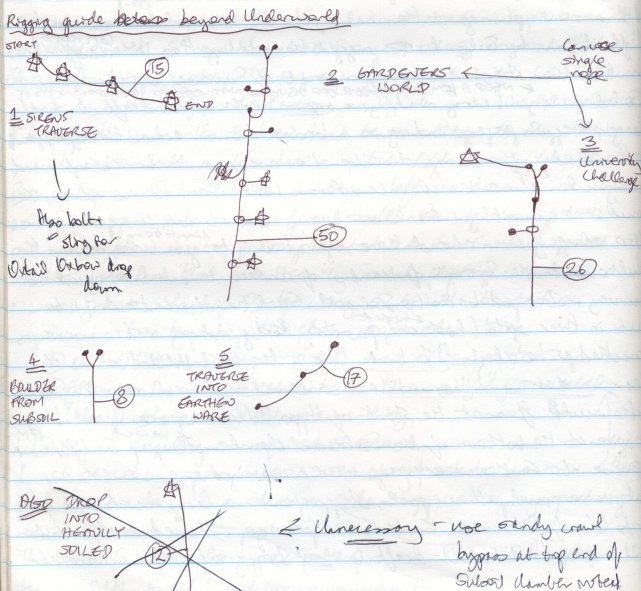 Rigging guide beyond Underworld
START
15
END
1 SIRENS
TRAVERSE
Also bolt +
sling for
Oxtail Oxbow drop
down
2 GARDENERS
WORLD
50
Can use
single
rope
3
University
Challenge
26
4
BOULDER
FROM
SUBSOIL
8
5
TRAVERSE
INTO
EARTHEN
WARE
17
ALSO DROP
INTO
HEAVILY
SOILED
12
Unnecessary - use sandy crawl
bypass at top end of
Subsoil